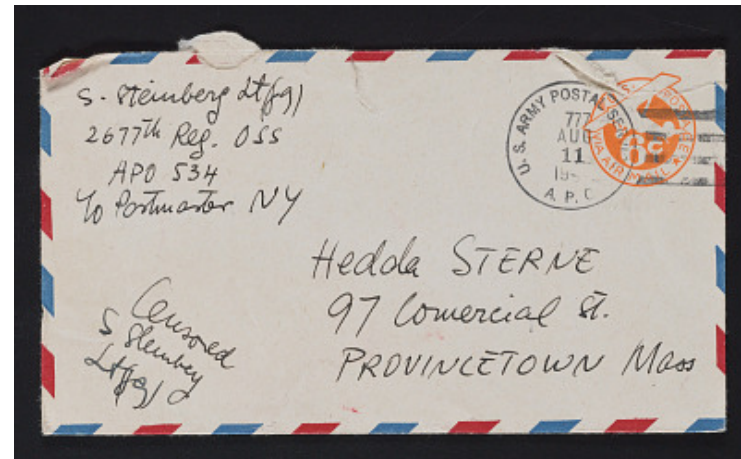 S. Steinberg Lt(jg)
2677th Reg. OSS
APO 534
℅ Postmaster NY
U.S. ARMY POSTAL
777
AUG
11
A.P.O
U.S. POSTAGE
6¢
VIA AIR MAIL
Hedda STERNE
97 Comercial St.
PROVINCETOWN Mass
Censored
S Steinberg
Lt(jg)